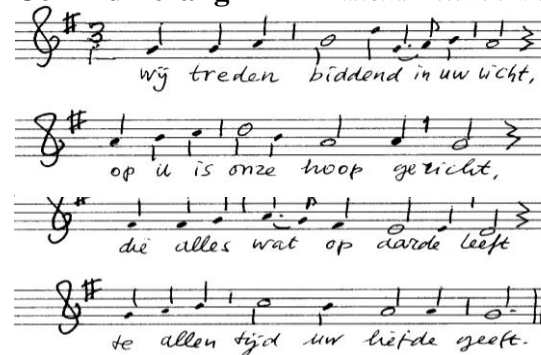 wij treden biddend in uw licht,
op u is onze hoop gericht,
die alles wat op aarde leeft
te allen tijd uw liefde geeft.